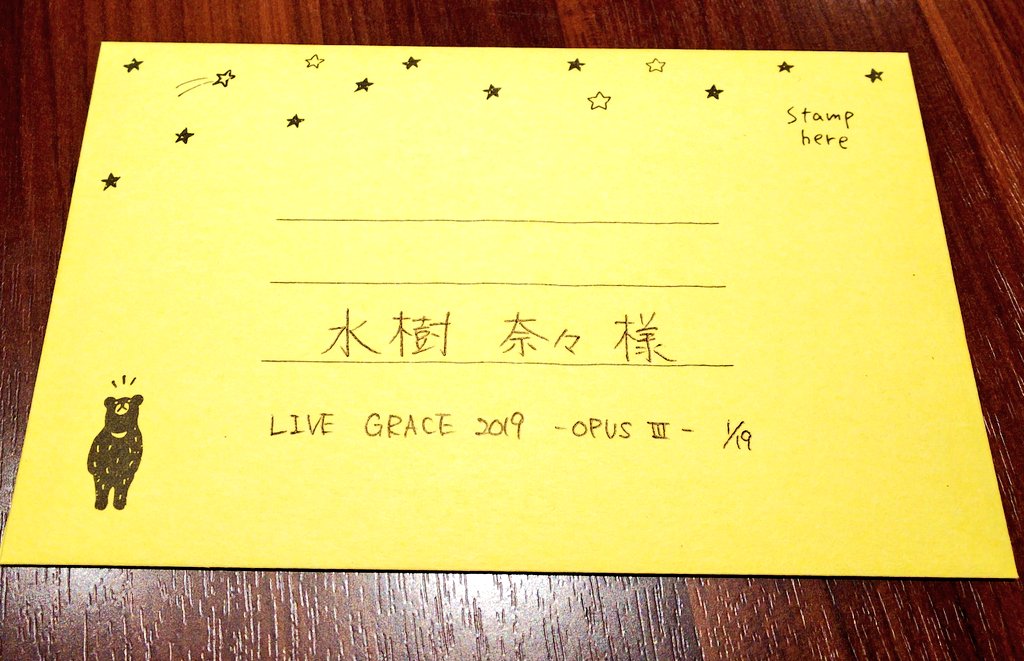 Stamp
here
水樹 奈々 様
LIVE GRACE 2019 -OPUS Ⅲ- 1/19